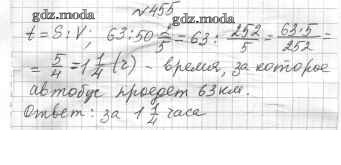 №455
gdz.com.ru gdz.com.ru
t = S : V; 63 : 50 2/5 = 63 : 252/5 = 63·5/252 =
= 5/4 = 1 1/4 (ч) - время, за которое
автобус проедет 63 км.
Ответ: за 1 1/4 часа